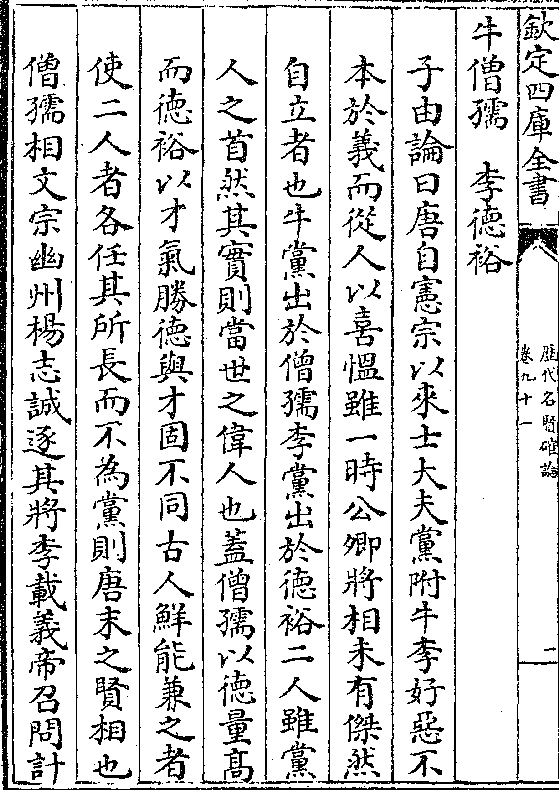 欽定四庫全書
歷代名賢確論
卷九十一
二
牛僧孺　李德裕
子由論曰唐自憲宗以來士大夫黨附牛李好惡不
本於義而從人以喜愠雖一時公卿將相未有傑然
自立者也牛黨出於僧孺李黨出於德裕二人雖黨
人之首然其實則當世之偉人也蓋僧孺以德量高
而德裕以才氣勝德與才固不同古人鮮能兼之者
使二人者各任其所長而不為黨則唐末之賢相也
僧孺相文宗幽州楊志誠逐其將李載義帝召問計